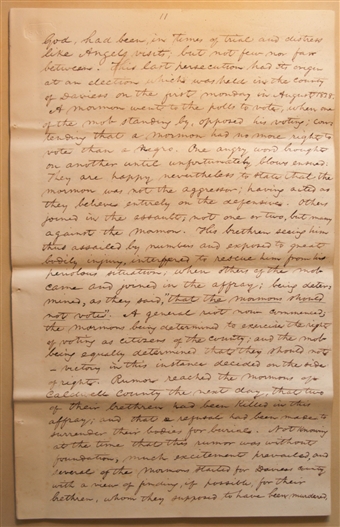 11
God, had been, in times of trial and distress
like Angels visit, but not few nor far
between. This last persecution had its origin
at an election which was held in the county
of Daviess on the first, monday in August 1838.
A mormon went to the polls to vote, when one
of the mob standing by, opposed his voting; con-
tending that a mormon had no more right to
vote than a negro. One angry word brought
on another until unfortunately blows ensued.
They are happy nevertheless to state that the
mormon was not the aggressor; having acted as
they believe entirely on the defensive. Others
joined in the assault, not one or two, but many
against the mormon. His brethren seeing him
thus assailed by numbers and exposed to great
bodily injury, interfered to rescue him from his
perilous situation, when others of the mob
came and joined in the affray; being deter-
mined, as they said, "that the mormons should
not vote". A general riot now commenced,
the mormons being determined to exercise the right
of voting as citizens of the county; and the mob
being equally determined that they should not
- victory in this instance decided on the side
of right. Rumor reached the mormons of
Caldwell County the next day, that two
of their brethren had been killed in this
affray; and that a refusal had been made to
surrender their bodies for burial. Not knowing
at the time that this rumor was without
foundation, much excitement prevailed and
several of the mormons started for Daviess County
with a view of finding, if possible, for their
brethren, whom they supposed to have been murdered